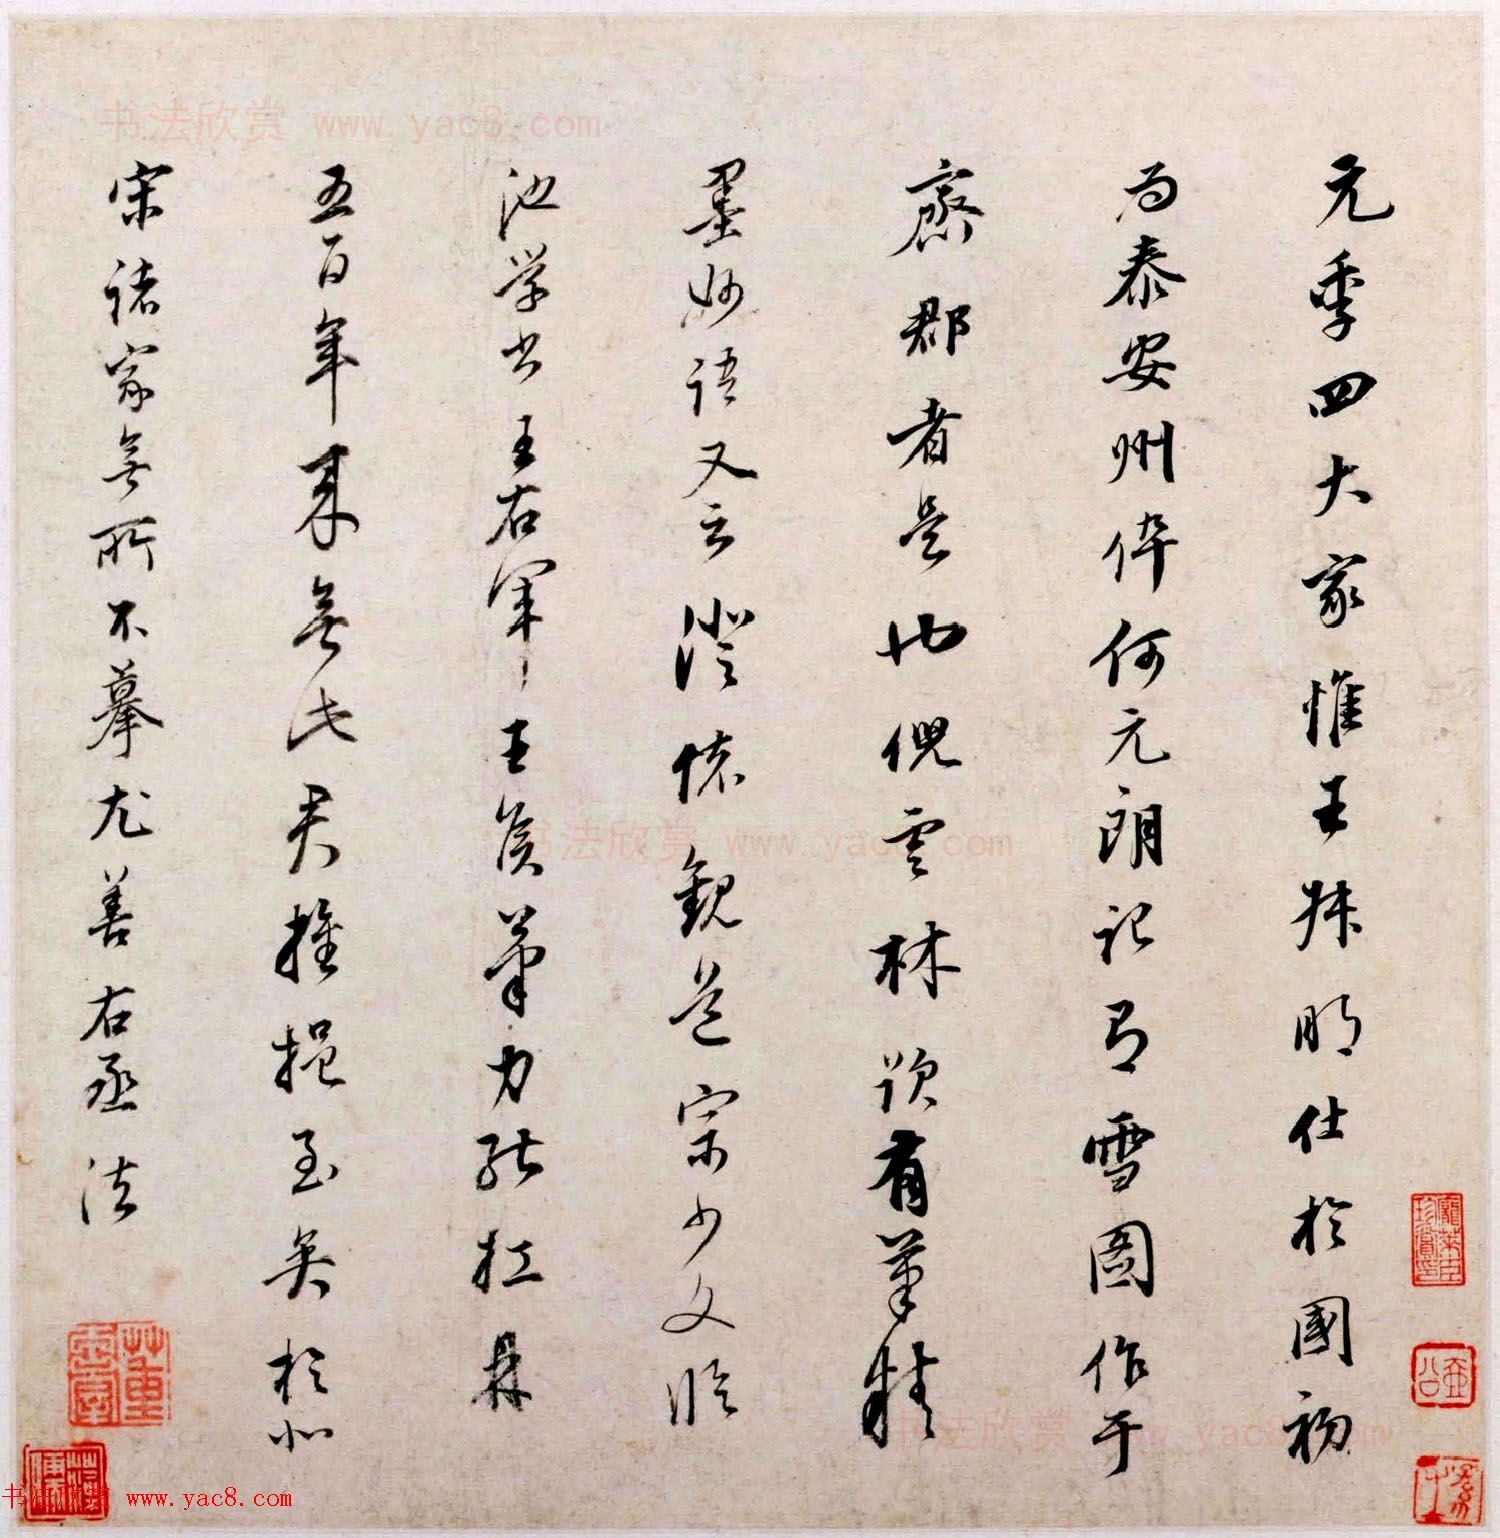 元季四大家惟王叔明仕於國初
为泰安州倅何元朗记有雪图作于
齋郡者是也倪雲林跋有筆精
墨妙语又云澄怀觀道宗少文临
池学书王右軍王侯筆力能扛鼎
五百年来無此君推挹至矣於北
宋诸家無所不摹尤善右丞法
书法欣赏 www.yac8.com
书法欣赏 www.yac8.com
书法欣赏 www.yac8.com
书法欣赏 www.yac8.com